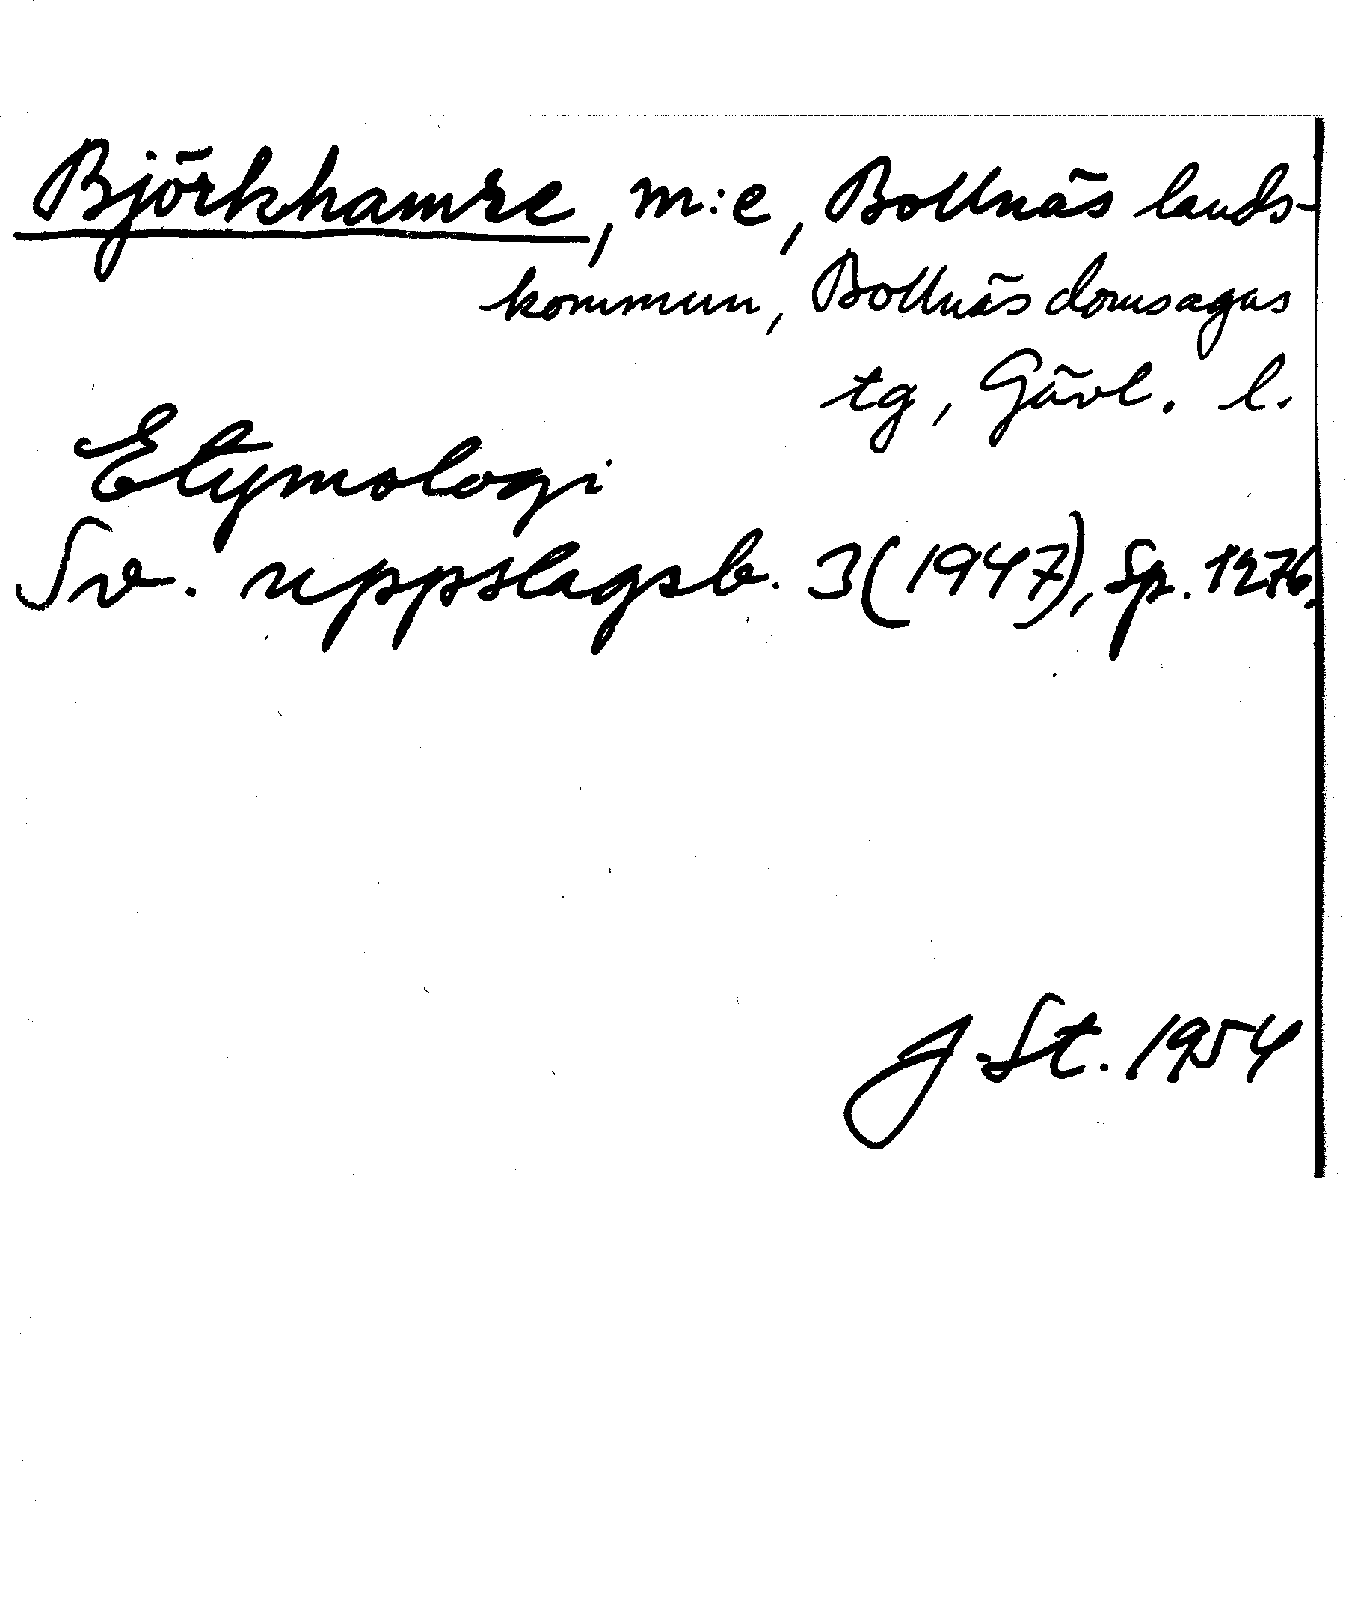 Björkhamre, m:e, Bollnäs lands-
kommun, Bollnäs domsagas
tg, Gävl. l.
Etymologi
Sv. uppslagsb. 3(1947), Sp. 1276.
J. St. 1954